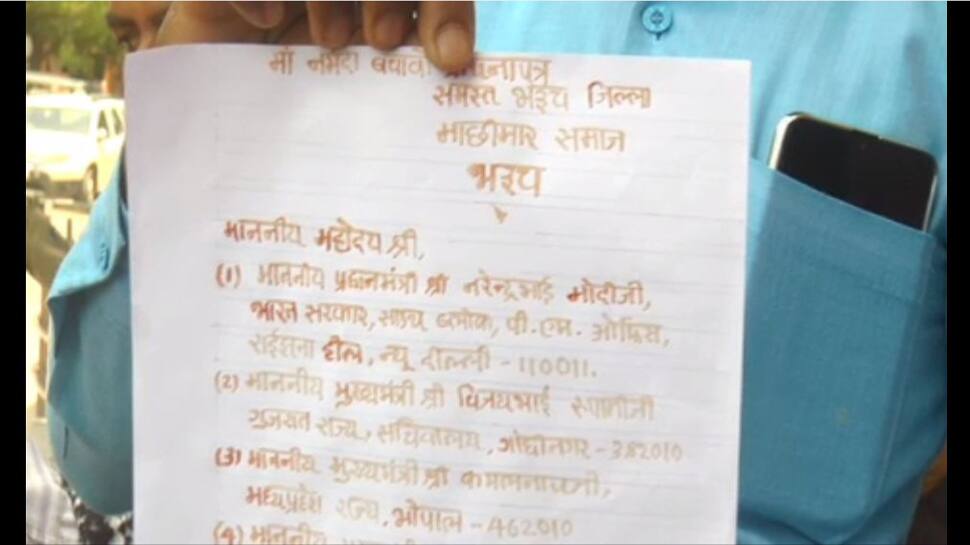 माँ नर्मदा बचावो
समस्त भरूच जिल्ला
माछीमार समाज
भरूच
माननीय महोदय श्री,
(1) माननीय प्रधानमंत्री श्री नरेन्द्रभाई मोदीजी,
भारत सरकार, साउथ ब्लोक, पी.एम. ओफिस,
राईसाना हील, न्यू दील्ली - 110011.
(2) माननीय मुख्यमंत्री श्री विजयभाई रूपानीजी
गुजरात राज्य, सचिवालय, गांधीनगर - 382010
(3) माननीय मुख्यमंत्री श्री कमलनाथजी,
मध्यप्रदेश राज्य, भोपाल - 462010
(4) माननीय